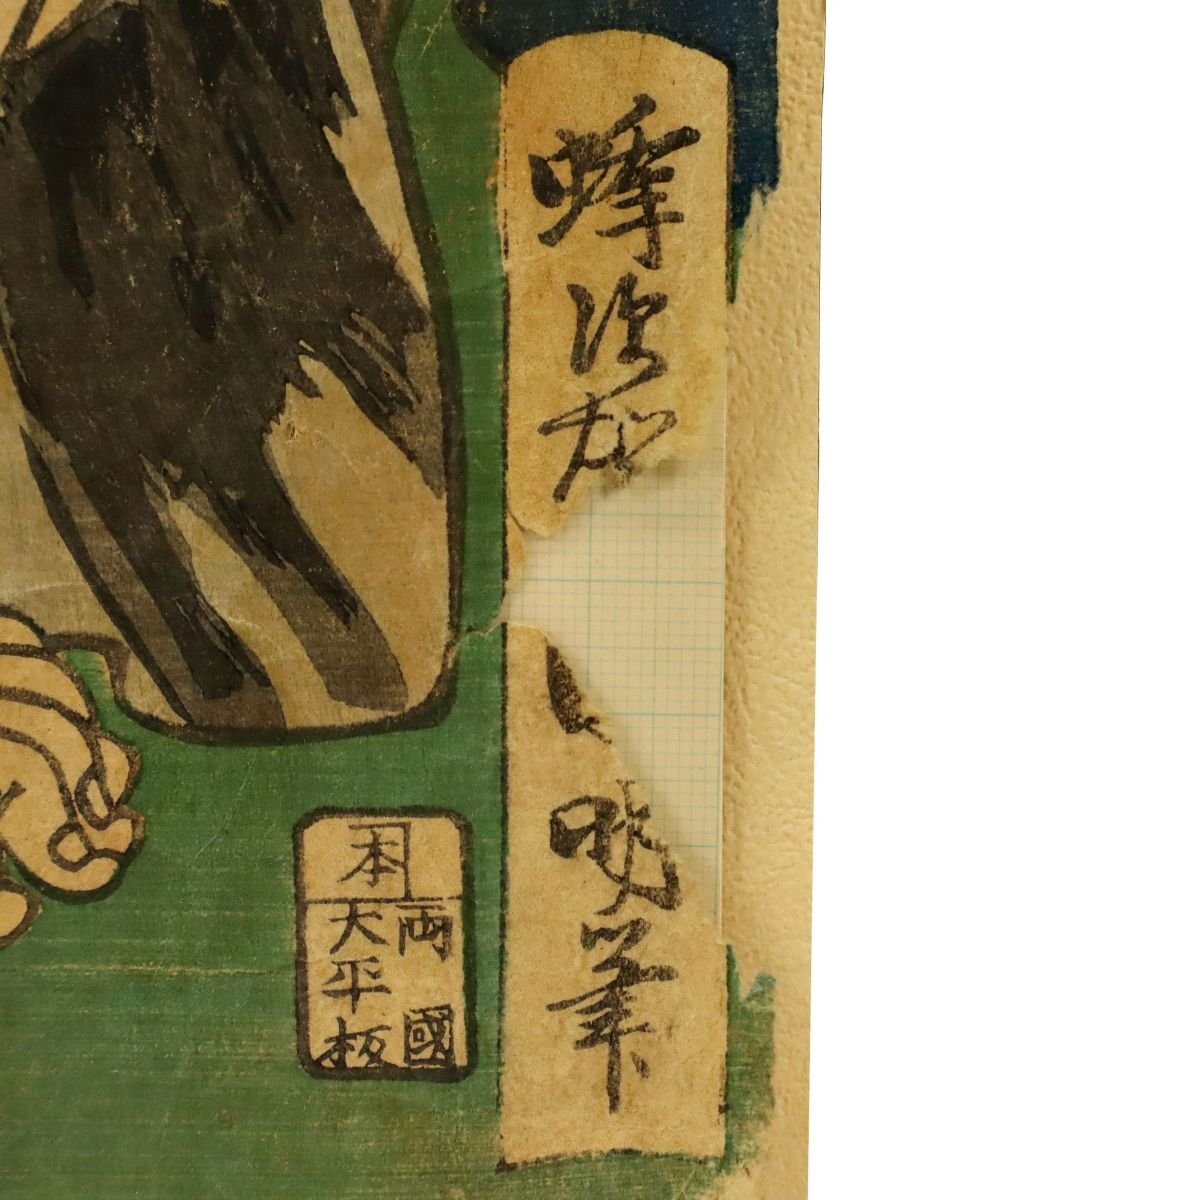 蜂須賀
暁筆
本
両國
大平板